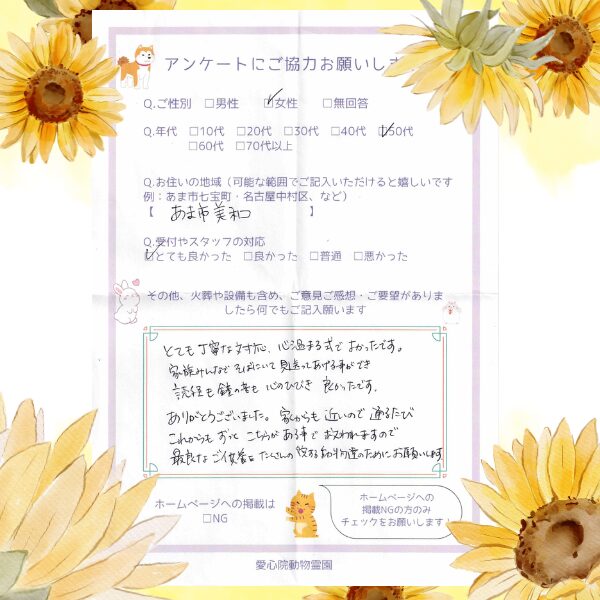 アンケートにご協力お願いしま
Q.ご性別 □男性 ☑女性 □無回答
Q.年代 □10代 □20代 □30代 □40代 ☑50代
□60代 □70代以上
Q.お住いの地域（可能な範囲でご記入いただけると嬉しいです
例：あま市七宝町・名古屋中村区、など）
【 あま市美和 】
Q.受付やスタッフの対応
☑とても良かった □良かった □普通 □悪かった
その他、火葬や設備も含め、ご意見ご感想・ご要望がありま
したら何でもご記入願います
とても丁寧な対応、心温まる式でよかったです。
家族みんなでそばにいて見送ってあげる事ができ
読経も鐘の音も心のひびき良かったです。
ありがとうございました。家からも近いので通るたび
これからもずっとこちらがある事で
最良なご供養をたくさんの のためにお願いします
ホームページへの掲載は
□NG
ホームページへの
掲載NGの方のみ
チェックをお願いします！
愛心院動物霊園